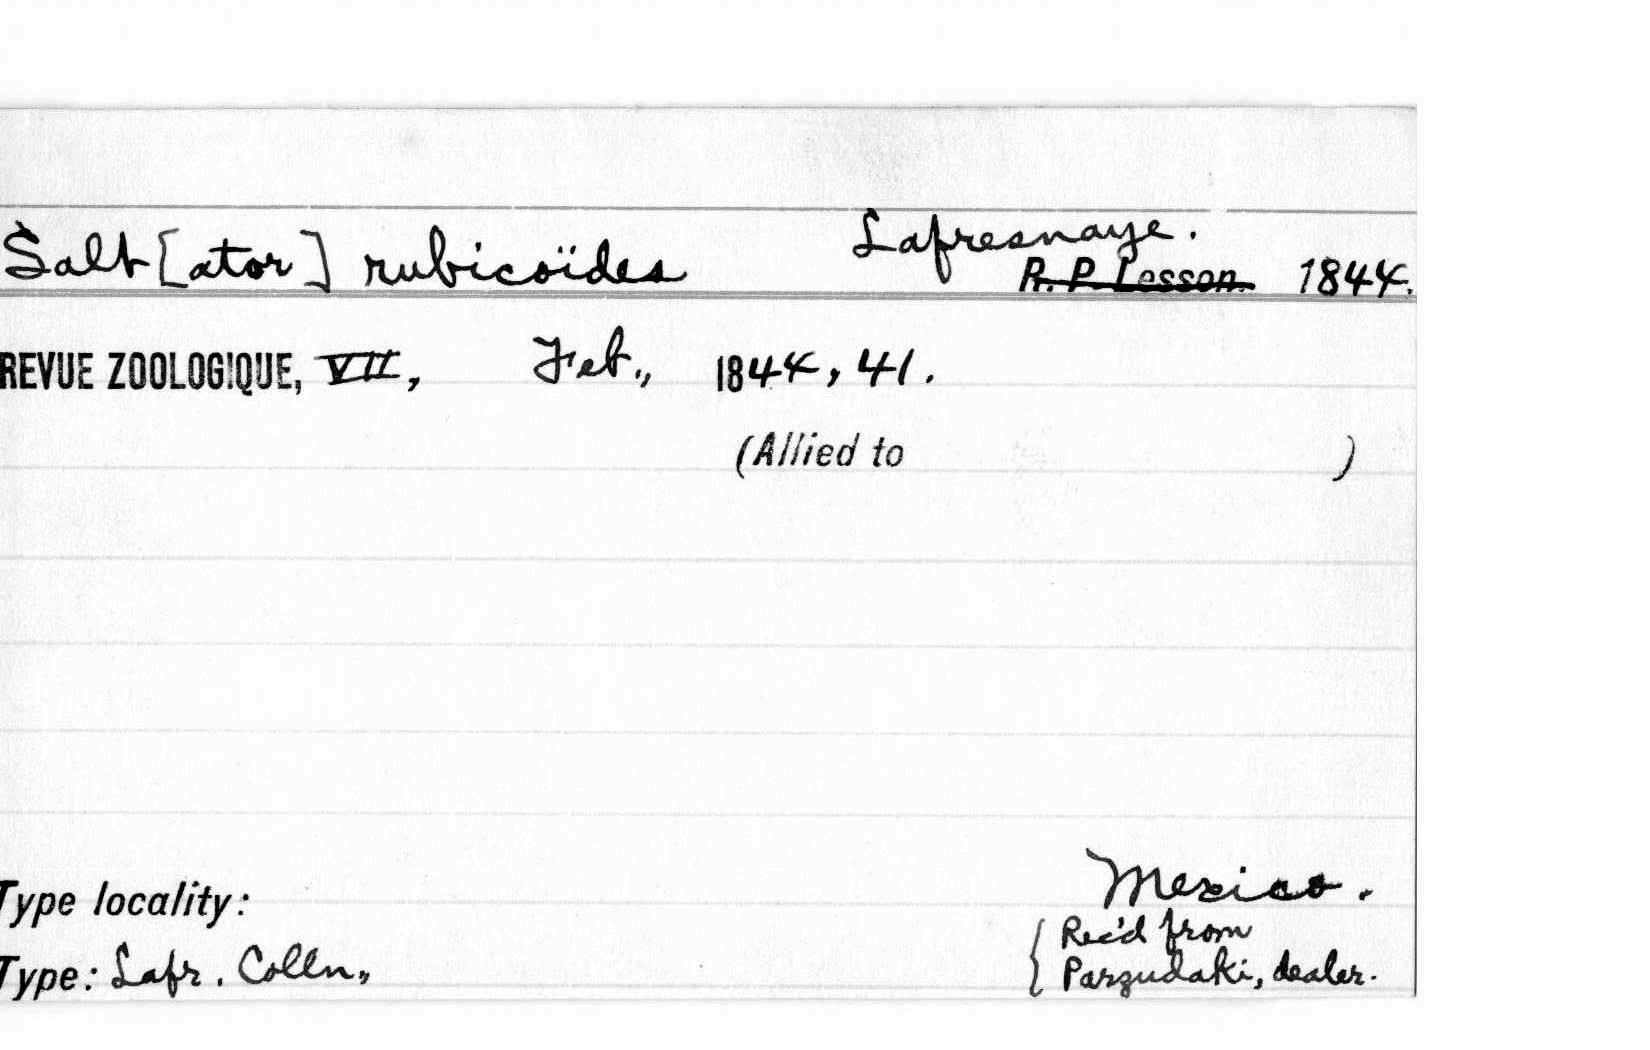 Salt[ator] rubicoïdes Lafresnaye.
R. P. Lesson. 1844.
REVUE ZOOLOGIQUE, VII, Feb., 1844, 41.
(Allied to )
Type locality: Mexico.
{ Rec'd from
Type: Lafr. Colln., Parzudaki, dealer.